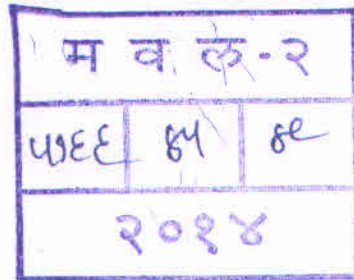 म व ल-२
५७६६ ४५ ४९
२०१४